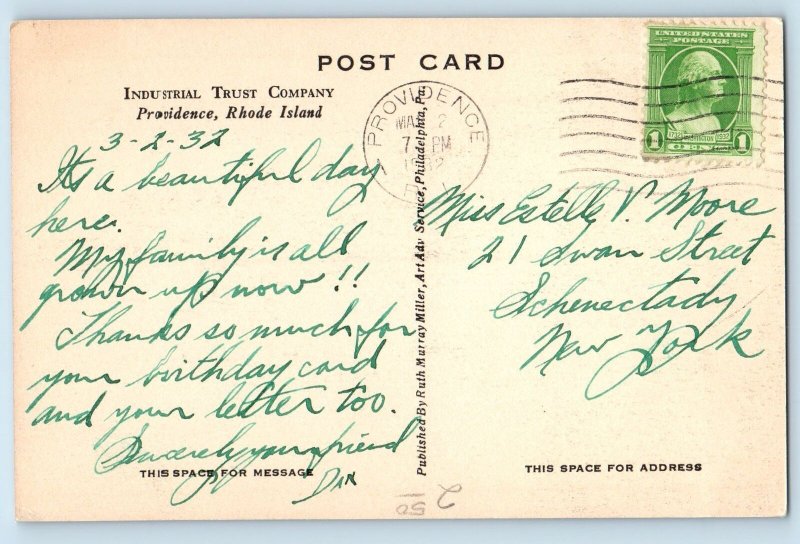 POST CARD
INDUSTRIAL TRUST COMPANY
Providence, Rhode Island
3-2-32
It's a beautiful day
here.
My family is all
grown up now!!
Thanks so much for
your birthday card
and your letter too.
Sincerely your friend
Dan
THIS SPACE FOR MESSAGE
Published By Ruth Murray Miller, Art Adv Service, Philadelphia, Pa.
PROVIDENCE
2
7 PM
UNITED STATES
POSTAGE
1732 WASHINGTON 1932
1 CENT 1
Miss Estelle V. Moore
21 Swan Street
Schenectady
New York
THIS SPACE FOR ADDRESS
2
50